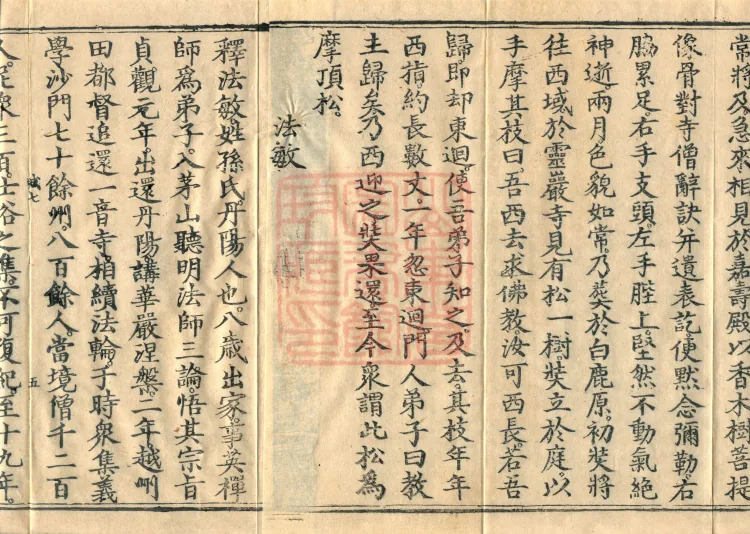 常將及急來相見於嘉壽殿以香木樹菩提
像骨對寺僧辭訣并遺表訖。便默念彌勒。右
脇累足。右手支頭。左手䏶上。堅然不動氣絶
神逝。兩月色貌如常。乃葬於白鹿原。初奘將
往西域於靈巖寺見有松一樹。奘立於庭。以
手摩其枝曰。吾西去求佛教。汝可西長。若吾
歸。即却東迴。使吾弟子知之。及去。其枝年年
西指。約長數丈。一年忽東迴。門人弟子曰。教
主歸矣。乃西迎之。奘果還。至今衆謂此松爲
摩頂松。
法敏
釋法敏。姓孫氏。丹陽人也。八歲出家。事英禪
師爲弟子。入茅山聽明法師三論。悟其宗旨
貞觀元年。出還丹陽。講華嚴涅槃。二年越州
田都督追還一音寺。相續法輪。于時衆集義
學沙門七十餘州。八百餘人。當境僧千二百
五
人。尼衆三百。士俗之集。不可復紀。至十九年。